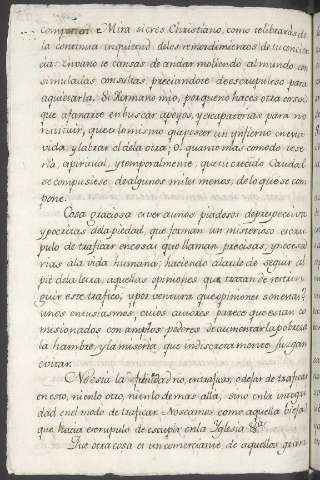 comperer. Mira si eres Christiano, como te librarás de
la continua inquietud de los remordimientos de tu concien
cia. En vano te cansas de andar moliendo al mundo con
simuladas consultas, preciandote de escrupuloso para
aquietarla. Si Hermano mio, porque no haces otra cosa
que afanarte en buscar apoyos, y escapatorias para no
restituir, que es lo mismo que poseer un ynfierno en esta
vida, y labrar el de la otra; O! quanto mas comodo te se
ría, espiritual, y temporalmente, que tu crecido Caudal
se compusiese de algunos miles menos, de lo que se com
pone.
Cosa graciosa es ver a unos piadosos de prespectiva
y pocritas de la piedad, que forman un misterioso escru
pulo de traficar en cosas que llaman precisas, y necesa
rias a la vida humana; haciendo alarde de seguir al
pie de la letra, aquellas opiniones que tratan de restrin
guir este trafico, y por ventura que opiniones son estas?
unos entusiasmos, cuios autores parece que estan co
misionados con amplios poderes de aumentar la pobreza
la hambre, y la miseria, que indiscretamente juzgan
evitar.
No está la en traficar, o dejar de traficar
en esto, ni en lo otro, ni en lo de mas alla, sino en la iniqui
dad en el modo de traficar. No seamos como aquella bieja
que hacia escrupulo de escupir en la Yglesia &ca.
Que otra cosa es un comerciante de aquellos gran